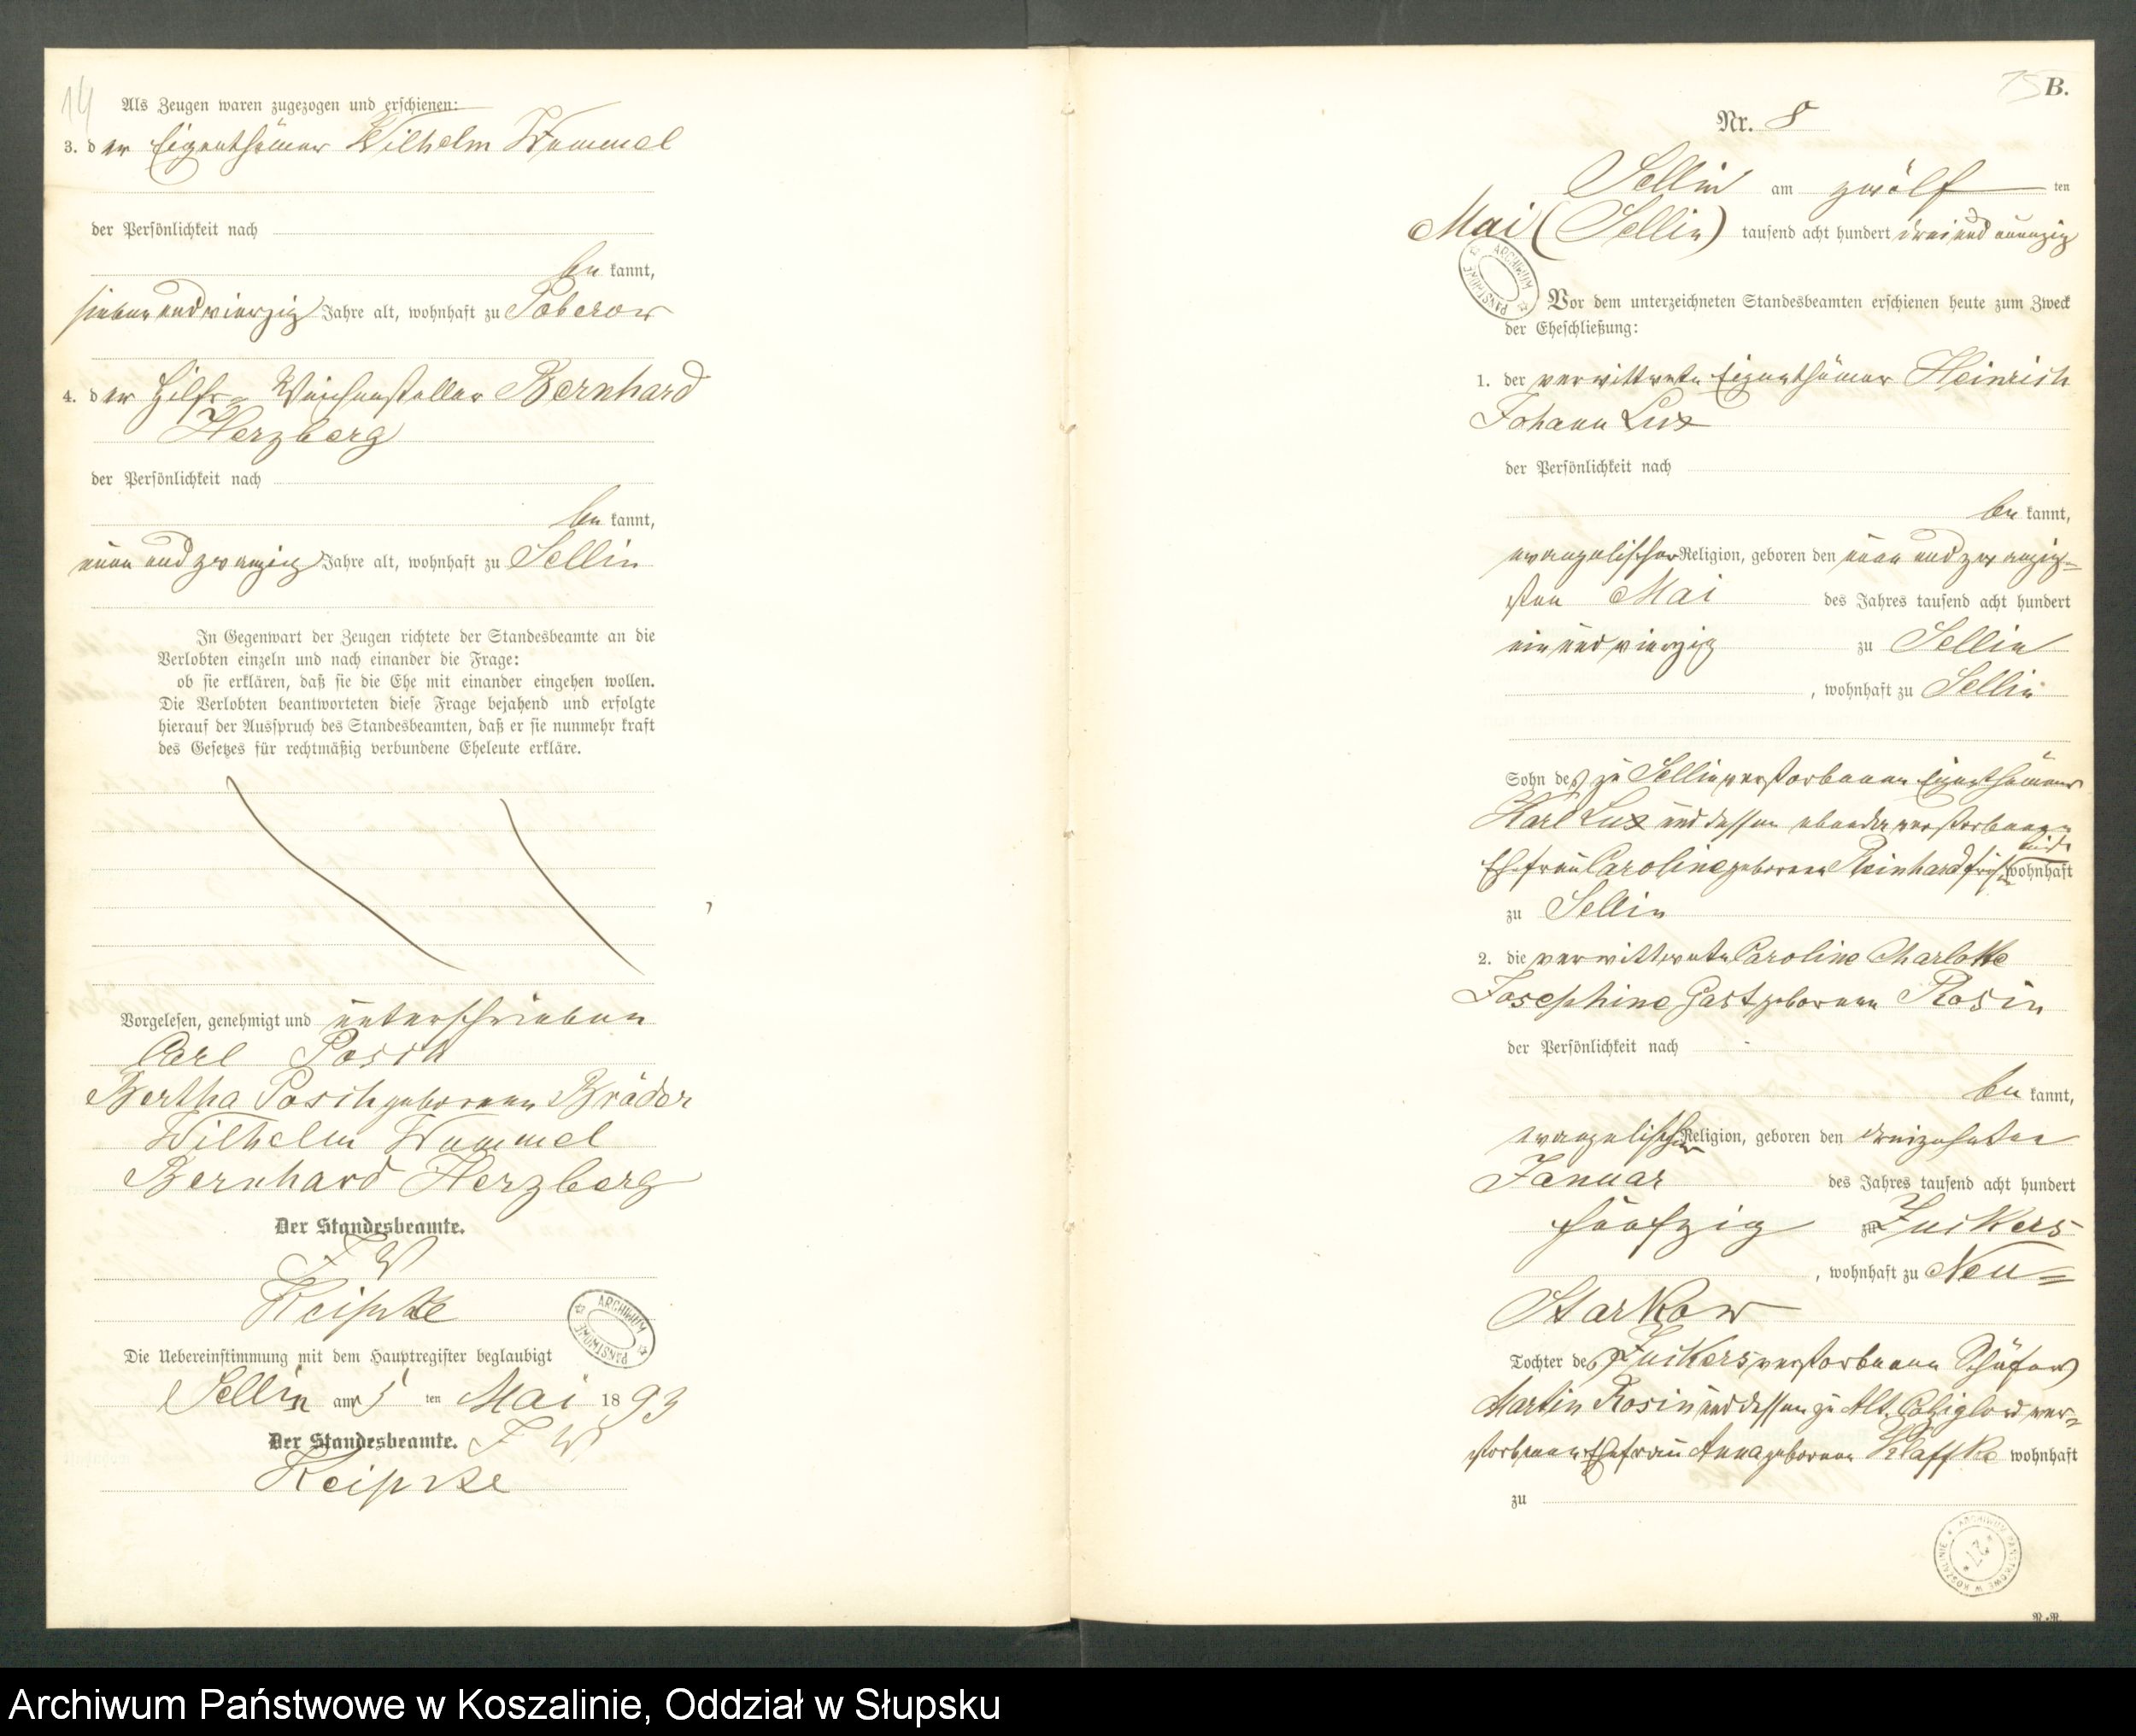 14
Als Zeugen waren zugezogen und erschienen:
3. der Eigenthümer Wilhelm Wummel
der Persönlichkeit nach
be kannt,
sieben und vierzig Jahre alt, wohnhaft zu Poberow
4. der Hilfs-Weichensteller Bernhard
Herzberg
der Persönlichkeit nach
be kannt,
neun und zwanzig Jahre alt, wohnhaft zu Sellin
In Gegenwart der Zeugen richtete der Standesbeamte an die
Verlobten einzeln und nach einander die Frage:
ob sie erklären, daß sie die Ehe mit einander eingehen wollen.
Die Verlobten beantworteten diese Frage bejahend und erfolgte
hierauf der Ausspruch des Standesbeamten, daß er sie nunmehr kraft
des Gesetzes für rechtmäßig verbundene Eheleute erkläre.
Vorgelesen, genehmigt und unterschrieben
Carl Posch
Bertha Posch geborenen Bräder
Wilhelm Wummel
Bernhard Herzberg
Der Standesbeamte.
F W
Keipke
ARCHIWUM PAŃSTWOWE
Die Uebereinstimmung mit dem Hauptregister beglaubigt
Sellin am 5 ten Mai 1893
Der Standesbeamte. F W
Keipke
15 B.
Nr. 8
Sellin am zwölf ten
Mai (Sellin) tausend acht hundert drei und neunzig
ARCHIWUM PAŃSTWOWE
Vor dem unterzeichneten Standesbeamten erschienen heute zum Zweck
der Eheschließung:
1. der verwittwete Eigenthümer Heinrich
Johann Lux
der Persönlichkeit nach
be kannt,
evangelischer Religion, geboren den neun und zwanzig-
sten Mai des Jahres tausend acht hundert
ein und vierzig zu Sellin
, wohnhaft zu Sellin
Sohn des zu Sellin verstorbenen Eigenthümers
Karl Lux und dessen ebenda verstorbenen
Ehefrau Caroline geborenen Reinhard wohnhaft
zu Sellin
2. die verwittwete Caroline Charlotte
Josephine Gast geborenen Rosin
der Persönlichkeit nach
be kannt,
evangelischer Religion, geboren den dreizehnten
Januar des Jahres tausend acht hundert
fünfzig zu Zuckers
, wohnhaft zu Neu-
Starkow
Tochter des zu Zuckers verstorbenen Schäfers
Martin Rosin und dessen zu Alt. ver-
storbenen Ehefrau Anna geborenen Klaffke wohnhaft
zu
ARCHIWUM PAŃSTWOWE W KOSZALINIE
R.-R.
Archiwum Państwowe w Koszalinie, Oddział w Słupsku